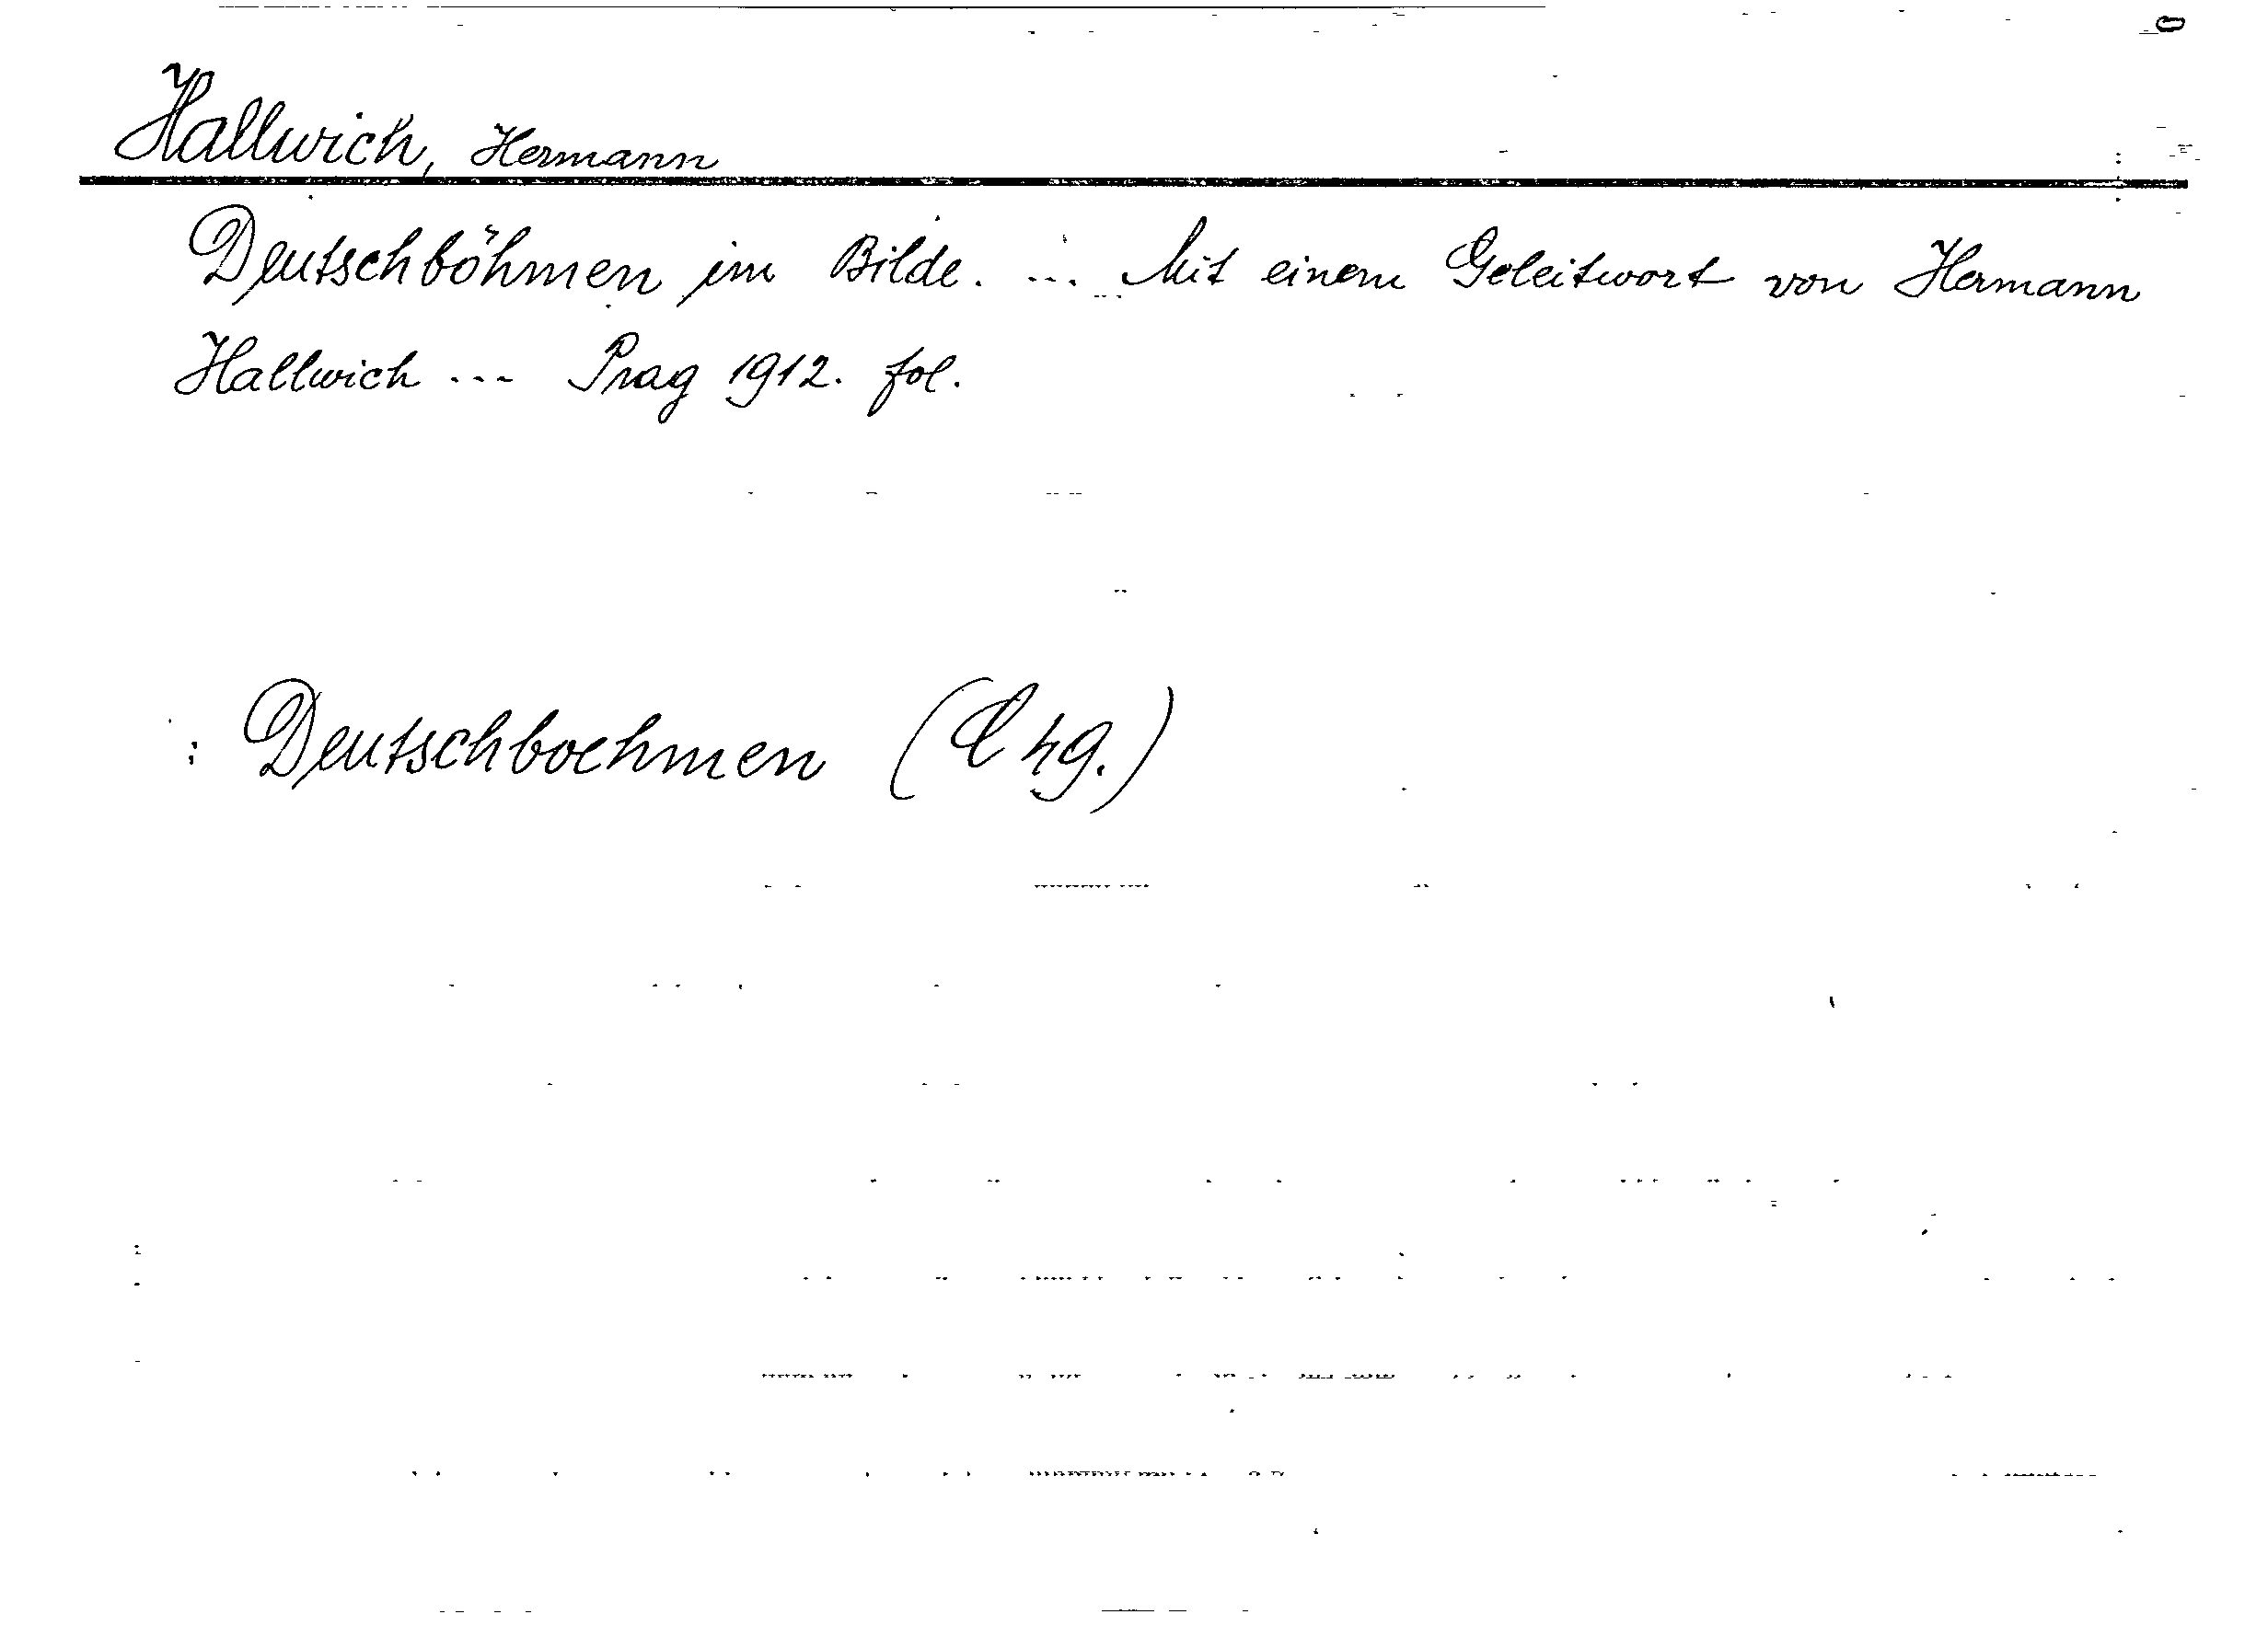 Hallwich, Hermann
Deutschböhmen im Bilde. ... Mit einem Geleitwort von Hermann
Hallwich ... Prag 1912. fol.
: Deutschboehmen